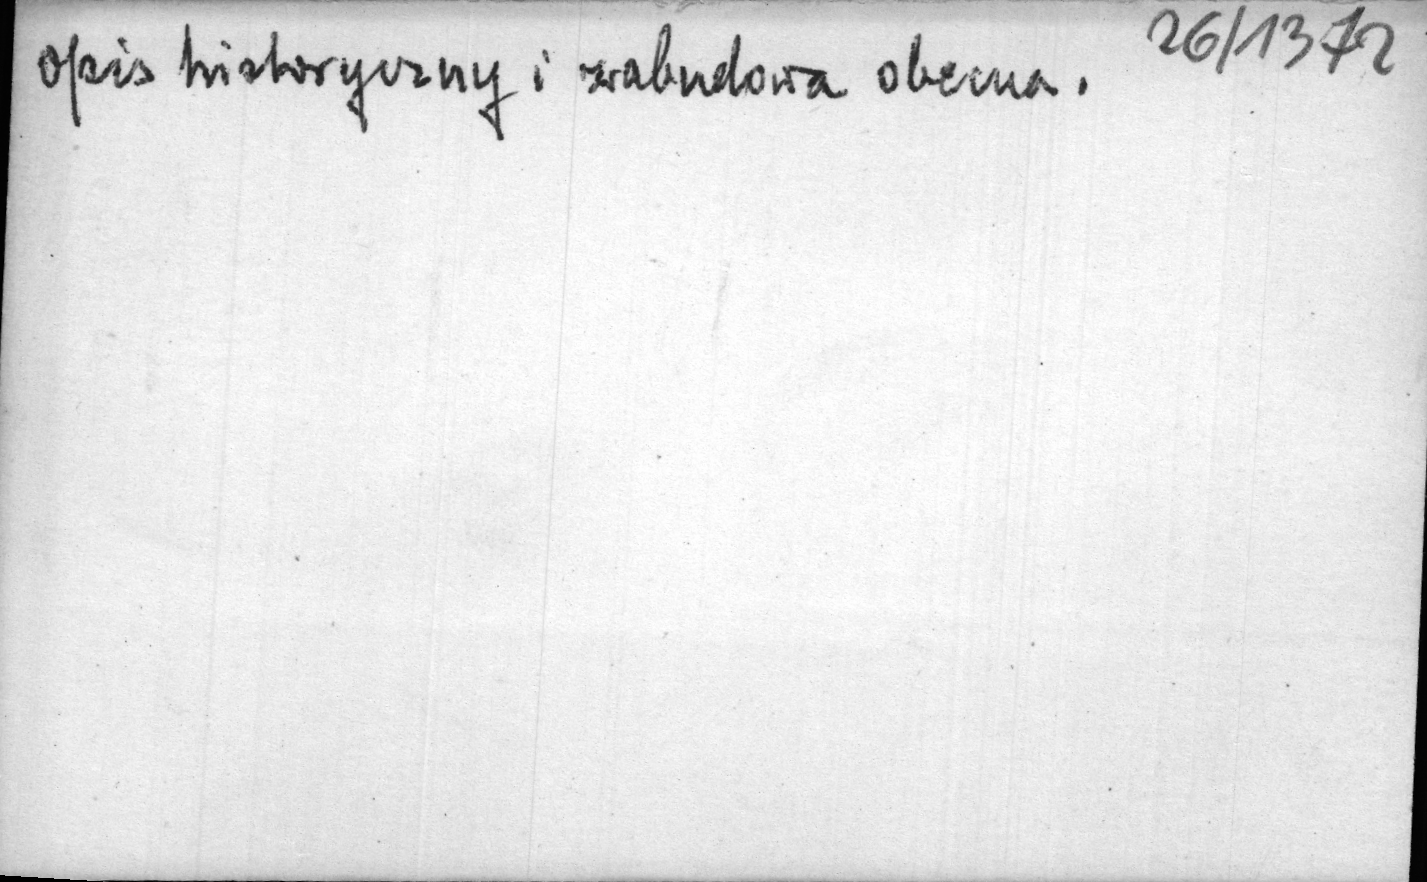 26/1372
opis historyczny i zabudowa obecna.